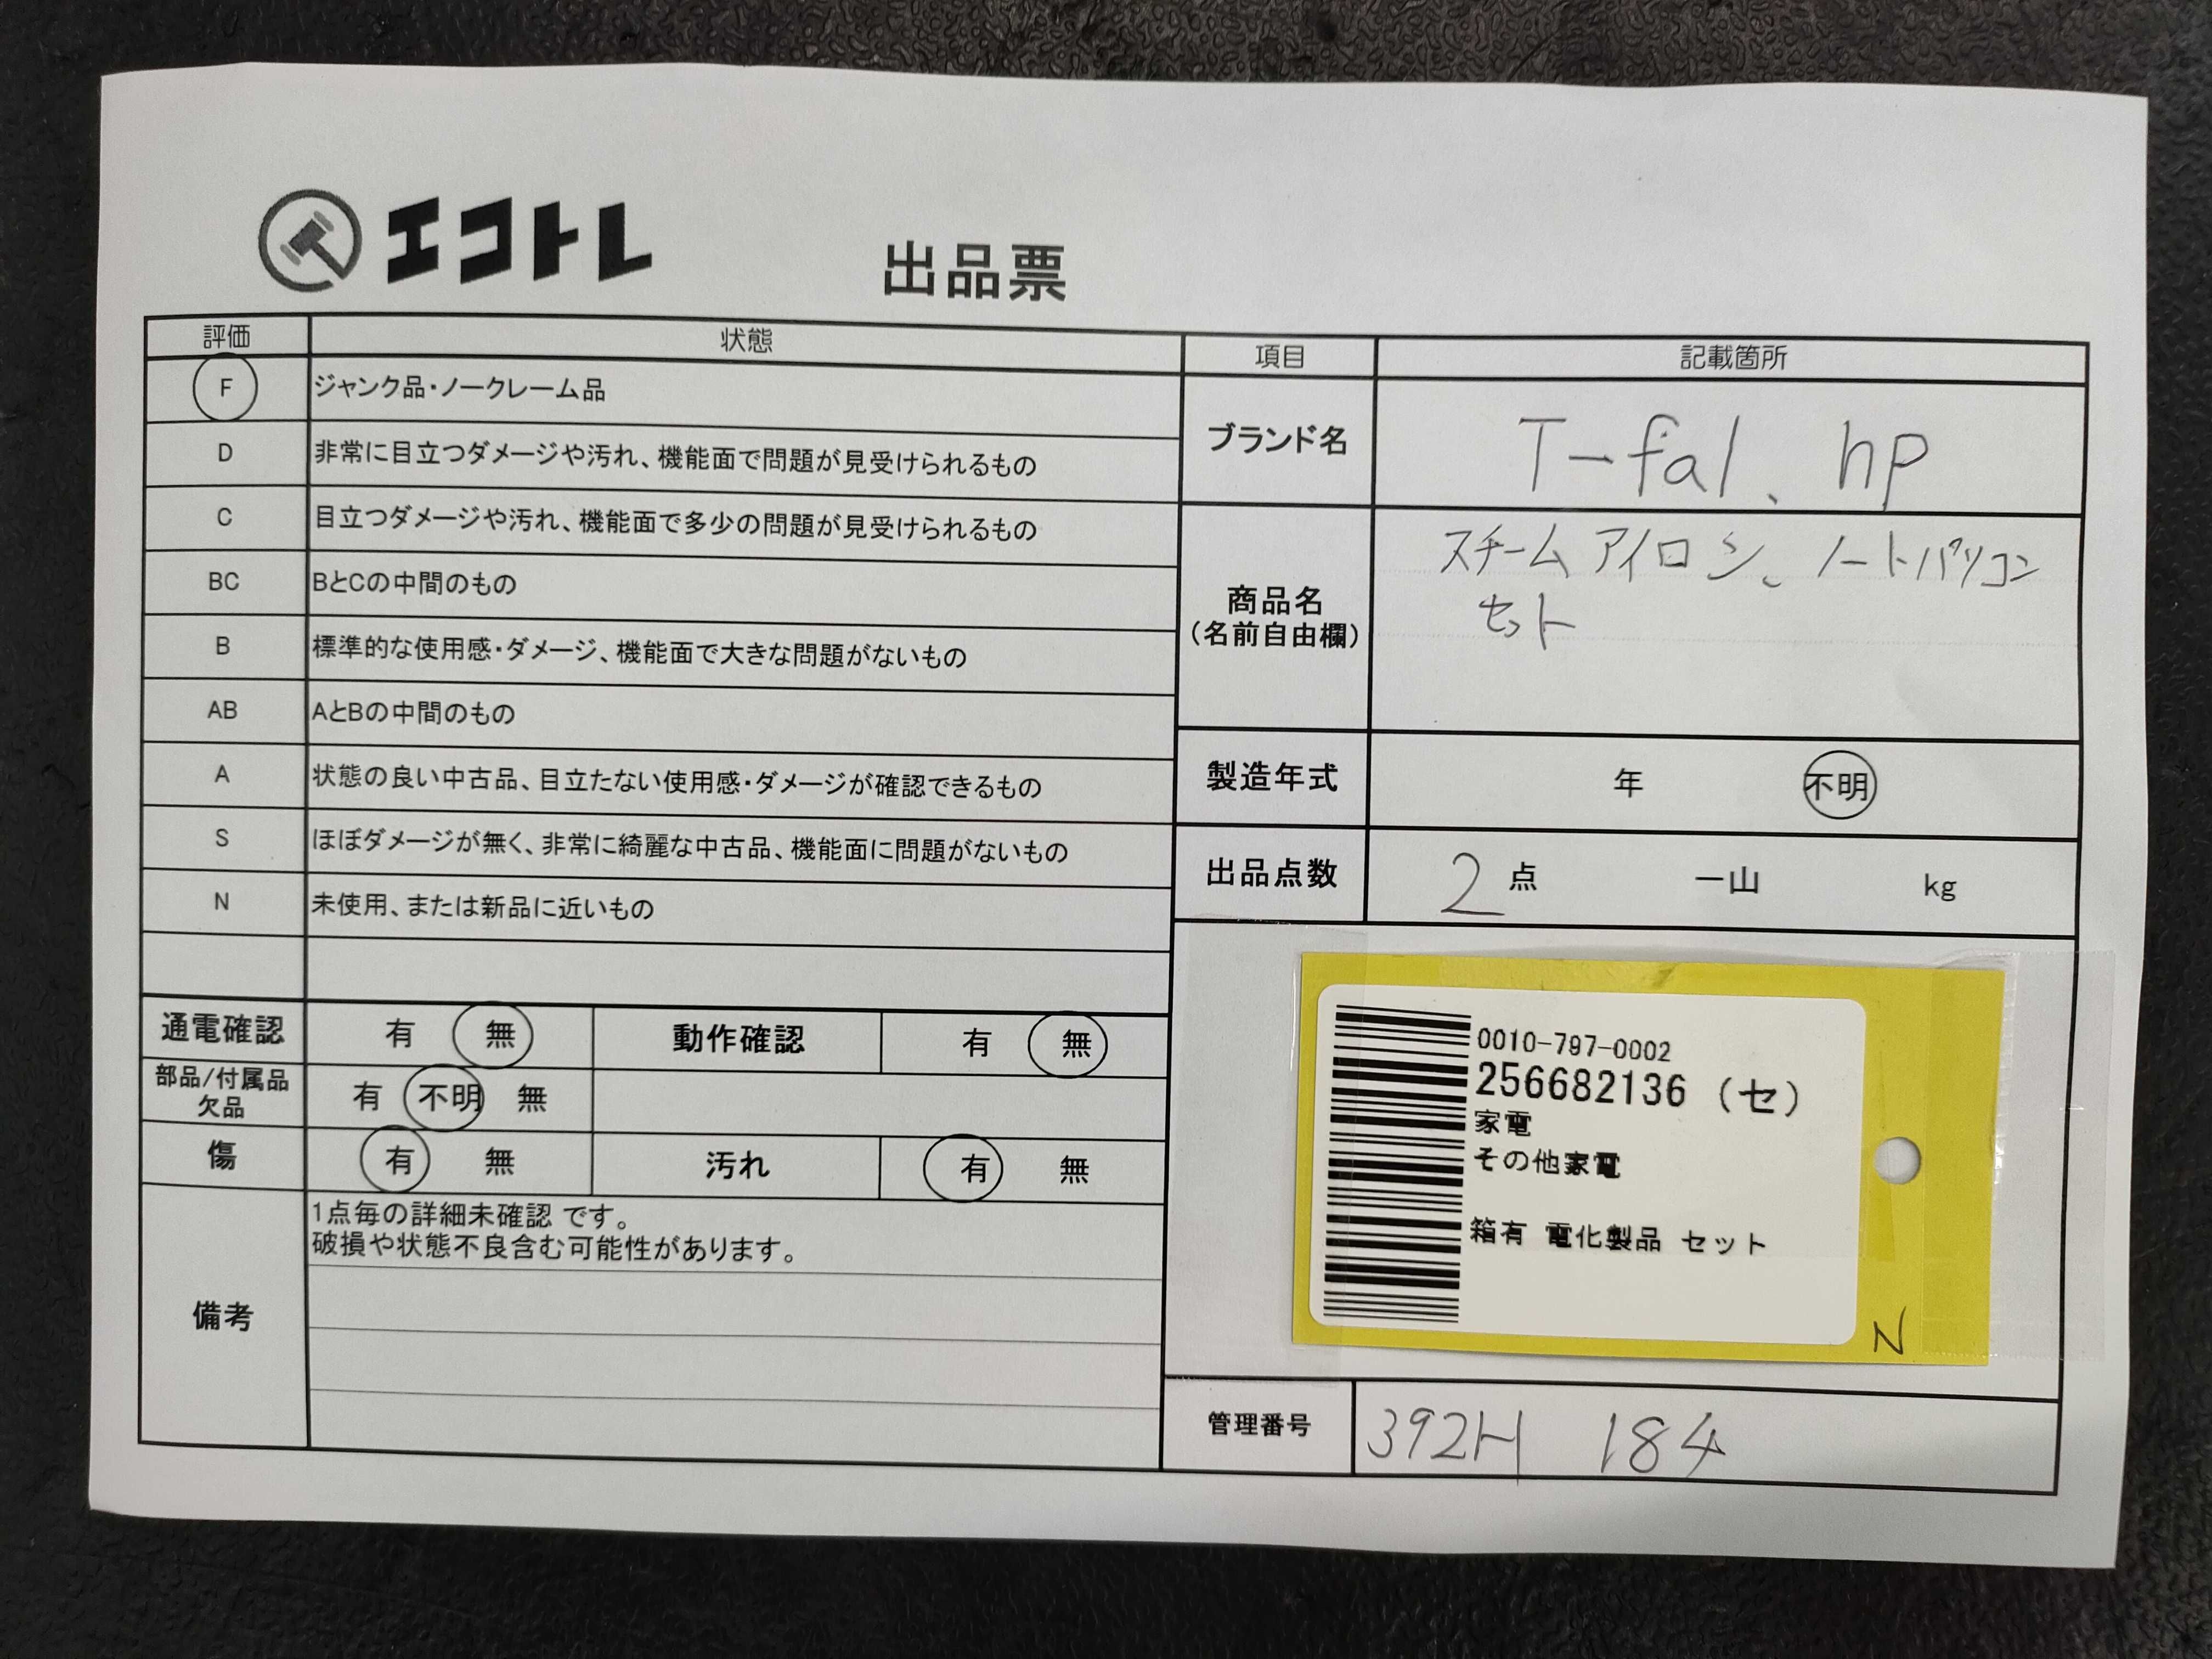 エコトレ
出品票
評価 状態
F ジャンク品・ノークレーム品
D 非常に目立つダメージや汚れ、機能面で問題が見受けられるもの
C 目立つダメージや汚れ、機能面で多少の問題が見受けられるもの
BC BとCの中間のもの
B 標準的な使用感・ダメージ、機能面で大きな問題がないもの
AB AとBの中間のもの
A 状態の良い中古品、目立たない使用感・ダメージが確認できるもの
S ほぼダメージが無く、非常に綺麗な中古品、機能面に問題がないもの
N 未使用、または新品に近いもの
通電確認 有 無 動作確認 有 無
部品/付属品
欠品 有 不明 無
傷 有 無 汚れ 有 無
備考
1点毎の詳細未確認 です。
破損や状態不良含む可能性があります。
項目 記載箇所
ブランド名 T-fal、hp
商品名
(名前自由欄)
スチームアイロン、ノートパソコン
セット
製造年式 年 不明
出品点数 2 点 一山 kg
0010-797-0002
256682136 (セ)
家電
その他家電
箱有 電化製品 セット
N
管理番号 392H 184